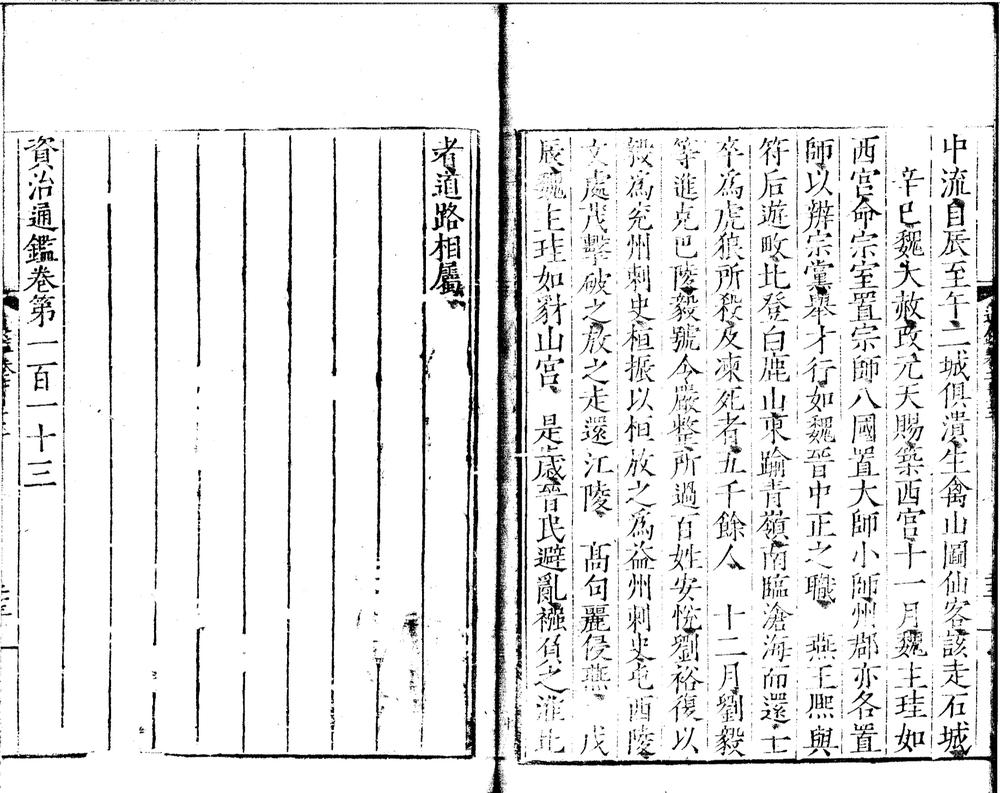 中流自辰至午二城俱潰生禽山圖仙客該走石城
辛巳魏大赦改元天賜築西宮十一月魏主珪如
西宮命宗室置宗師八國置大師小師州郡亦各置
師以辨宗黨舉才行如魏晉中正之職 燕王熙與
符后遊畋北登白鹿山東踰青嶺南臨滄海而還士
卒為虎狼所殺及凍死者五千餘人 十二月劉毅
等進克巴陵毅號令嚴整所過百姓安悅劉裕復以
毅為兖州刺史桓振以桓放之為益州刺史屯西陵
文處茂擊破之放之走還江陵 髙句麗侵燕 戊
辰魏主珪如豺山宮 是歲晉民避亂襁負之淮北
者道路相屬
資治通鑑卷第一百一十三